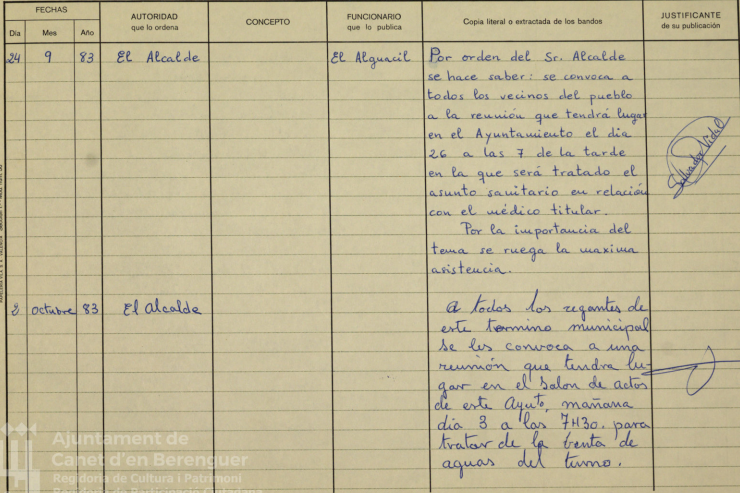 FECHAS
Día Mes Año
AUTORIDAD
que lo ordena
CONCEPTO
FUNCIONARIO
que lo publica
Copia literal o extractada de los bandos
JUSTIFICANTE
de su publicación
24 9 83 El Alcalde El Alguacil
Por orden del Sr. Alcalde
se hace saber: se convoca a
todos los vecinos del pueblo
a la reunión que tendrá lugar
en el Ayuntamiento el dia
26 a las 7 de la tarde
en la que será tratado el
asunto sanitario en relación
con el médico titular.
Por la importancia del
tema se ruega la maxima
asistencia.
Salvador Vidal
2 octubre 83 El alcalde
a todos los regantes de
este termino municipal
se les convoca a una
reunión que tendra lu-
gar en el Salon de actos
de este Ayutº, mañana
dia 3 a las 7H30. para
tratar de la benta de
aguas del turno.
Ajuntament de
Canet d'en Berenguer
Regidoria de Cultura i Patrimoni